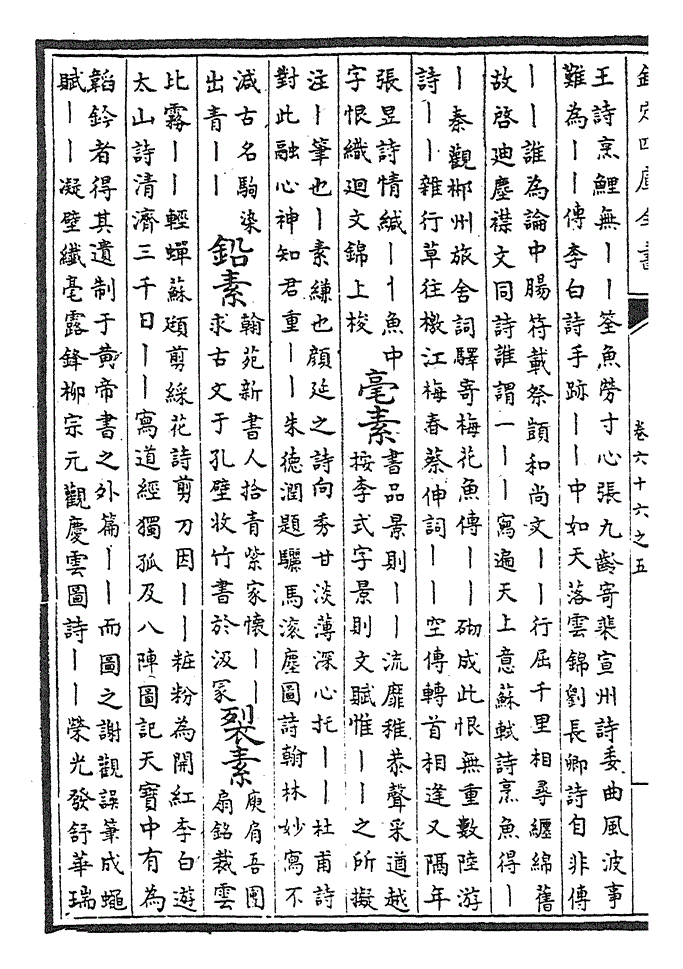 欽定四庫全書
卷六十六之五
王詩烹鯉無丨丨筌魚勞寸心張九齡寄裴宣州詩委曲風波事
難為丨丨傳李白詩手跡丨丨中如天落雲錦劉長卿詩自非傳
丨丨誰為論中腸符載祭顗和尚文丨丨行屈千里相尋纏綿舊
故啓廸塵襟文同詩誰謂一丨丨寫遍天上意蘇軾詩烹魚得丨
丨秦觀郴州旅舍詞驛寄梅花魚傳丨丨砌成此恨無重數陸游
詩丨丨雜行草往檄江梅春蔡伸詞丨丨空傳轉首相逢又隔年
張昱詩情緘丨丨魚中
字恨織迴文錦上梭
毫素
書品景則丨丨流靡稚恭聲采遒越
按李式字景則文賦惟丨丨之所擬
注丨筆也丨素縑也顔延之詩向秀甘淡薄深心托丨丨杜甫詩
對此融心神知君重丨丨朱德潤題驪馬滚塵圖詩翰林妙寫不
減古名駒染
出青丨丨
鉛素
翰苑新書人拾青紫家懷丨丨
求古文于孔壁收竹書於汲冢
裂素
庾肩吾團
扇銘裁雲
比霧丨丨輕蟬蘇頲剪綵花詩剪刀因丨丨粧粉為開紅李白遊
太山詩清濟三千日丨丨寫道經獨孤及八陣圖記天寶中有為
韜鈐者得其遺制于黄帝書之外篇丨丨而圖之謝觀誤筆成蠅
賦丨丨凝壁纖毫露鋒柳宗元觀慶雲圖詩丨丨榮光發舒華瑞